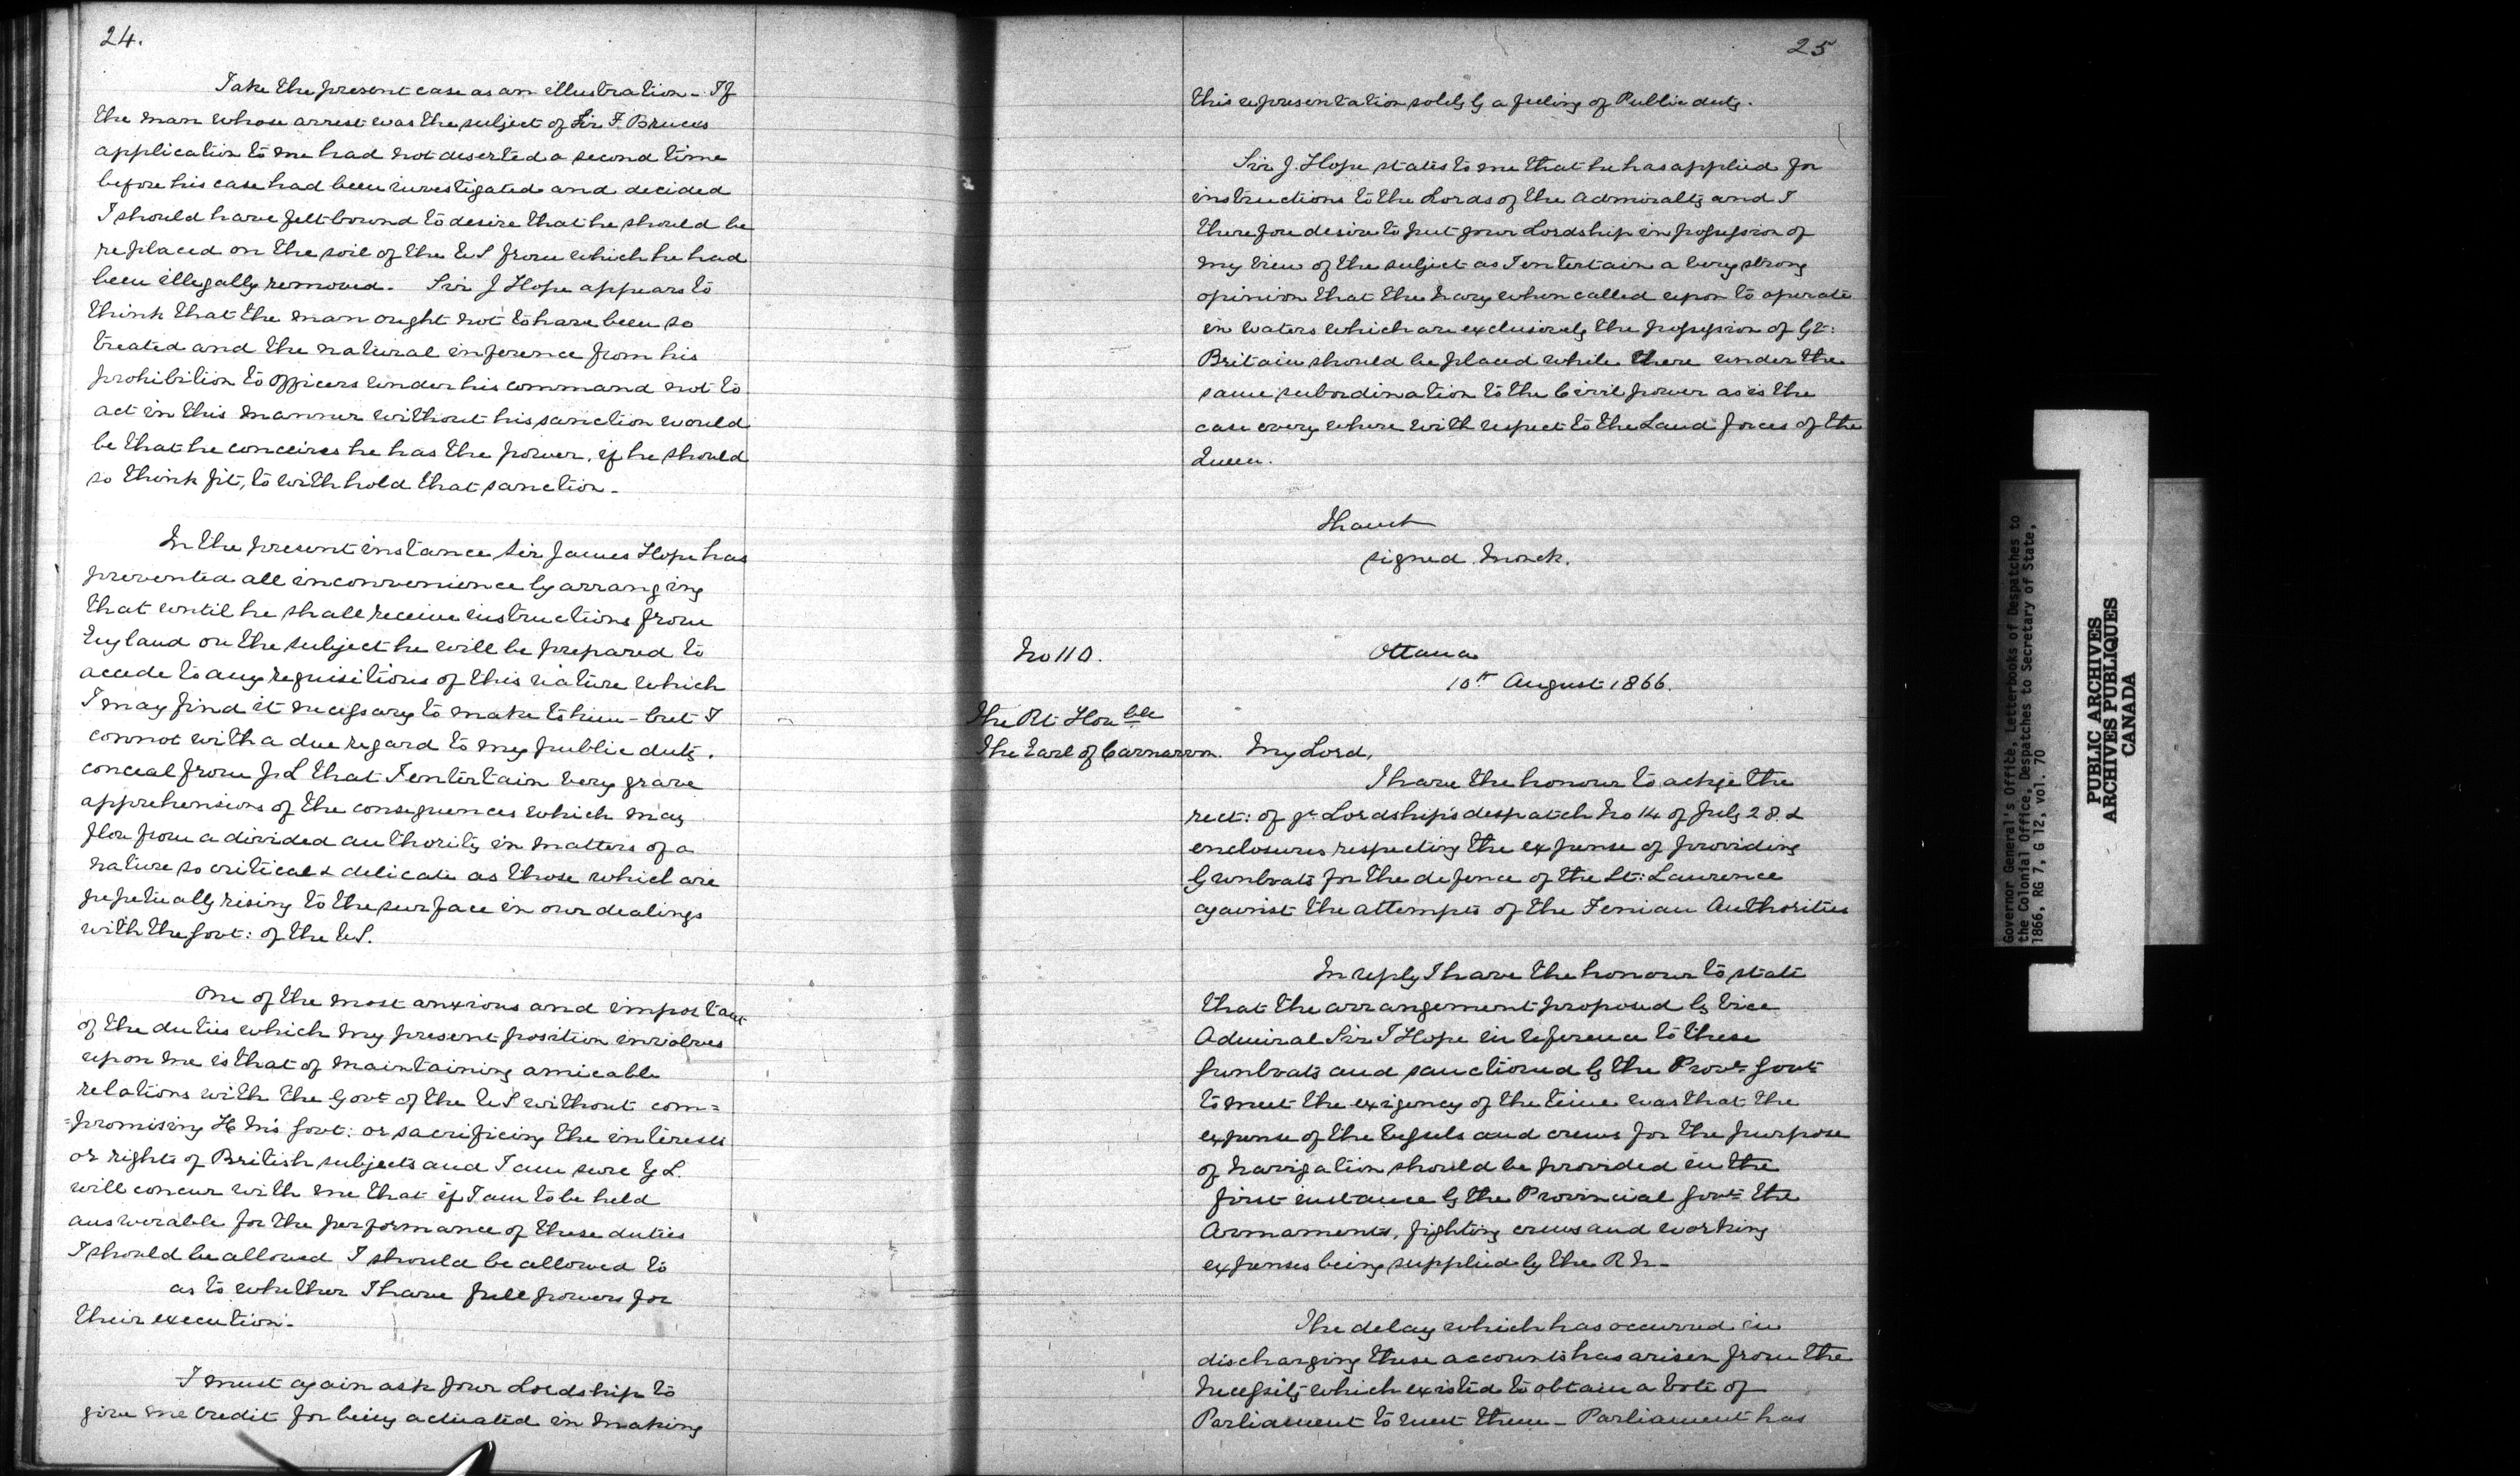 24.
Take the present case as an illustration - If
the man whose arrest was the subject of Sir F. Bruces
application to me had not deserted a second time
before his case had been investigated and decided
I should have felt bound to desire that he should be
replaced on the soil of the US from which he had
been illegally removed. Sir J Hope appears to
think that the man ought not to have been so
treated and the natural inference from his
prohibition to officers under his command not to
act in this manner without his sanction would
be that he conceives he has the power, if he should
so think fit, to withhold that sanction -
In the present instance Sir James Hope has
prevented all inconvenience by arranging
that until he shall receive instructions from
England on the subject he will be prepared to
accede to any requisitions of this nature which
I may find it necessary to make to him - but I
cannot with a due regard to my public duty.
conceal from yr L that I entertain very grave
apprehensions of the consequences which may
flow from a divided authority in matters of a
nature so critical & delicate as those which are
perpetually rising to the surface in our dealings
with the Govt: of the US.
One of the most anxious and important
of the duties which my present position involves
upon me is that of maintaining amicable
relations with the Govt of the US without com=
=promising H M's Govt: or sacrificing the interests
or rights of British subjects and I am sure Y L.
will concur with me that if I am to be held
answerable for the performance of these duties
I should be allowed I should be allowed to
as to whether I have full powers for
their execution.
I must again ask your Lordship to
give me credit for being actuated in making
25
this representation solely by a feeling of Public duty.
Sir J. Hope states to me that he has applied for
instructions to the Lords of the Admiralty and I
therefore desire to put your Lordship in possession of
my view of the subject as I entertain a very strong
opinion that the Navy when called upon to operate
in waters which are exclusively the possession of Gt:
Britain should be placed while there under the
same subordination to the Civil power as is the
case every where with respect to the Land forces of the
Queen.
I have &
signed Monck.
No 110.
Ottawa
10th August 1866.
The Rt Honble
The Earl of Carnarvon.
My Lord,
I have the honour to ackge the
rect: of yr Lordship's despatch No 14 of July 28. &
enclosures respecting the expense of providing
Gunboats for the defence of the St: Lawrence
against the attempts of the Fenian Authorities
In reply I have the honour to state
that the arrangement proposed by Vice
Admiral Sir J Hope in reference to these
Gunboats and sanctioned by the Provl Govt
to meet the exigency of the time was that the
expense of the Vessels and crews for the purpose
of navigation should be provided in the
first instance by the Provincial Govt the
Armaments, fighting crews and working
expenses being supplied by the R N -
The delay which has occurred in
discharging these accounts has arisen from the
necessity which existed to obtain a vote of
Parliament to meet them - Parliament has
Governor General's Office, Letterbooks of Despatches to
the Colonial Office, Despatches to Secretary of State,
1866, RG 7, G 12, vol. 70
PUBLIC ARCHIVES
ARCHIVES PUBLIQUES
CANADA